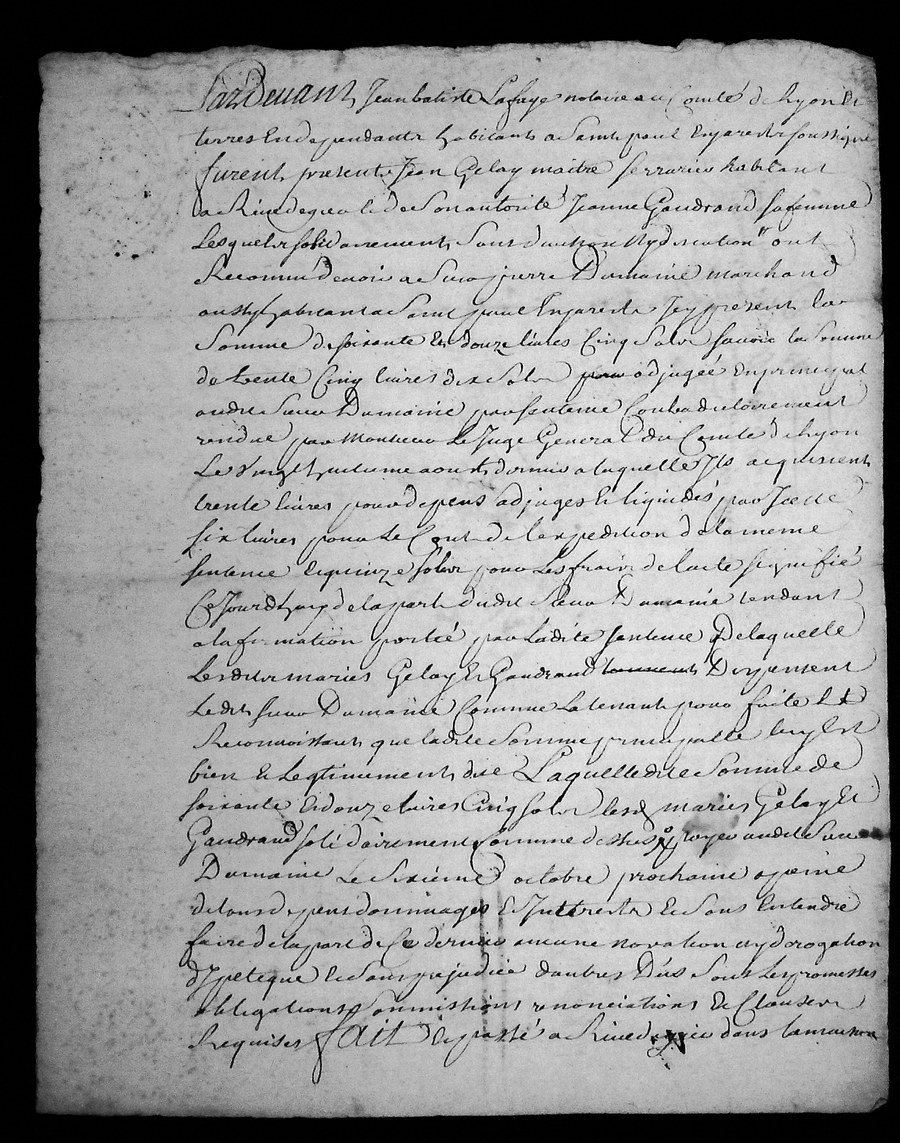 Pardevant Jean batiste Lafaye notaire au Comté de Lyon Et
terres En dependants habitants a Saint paul En jarest soussigné
furent presents Jean Gelay maitre serrurier habitant
a Rivedegier et de Son autorité Jeanne Gaudrand sa femme
Lesquels solidairement sans division ny discution ont
Reconnu devoir a Sieur pierre Dumaine marchand
aussy habitant a Saint paul En jarest Icy present la
Somme de soixante Et douze livres Cinq Sols savoir la Somme
de trente Cinq livres dix Sols adjugée En principal
audit Sieur Dumaine par sentence Contradictoirement
rendue par Monsieur Le Juge General du Comté de Lyon
Le vingt huitieme aoust dernier a laquelle Ils acquiescent
trente livres pour depens adjugés Et liquidés par Icelle
six livres pour Le Cout de l'expedition de la meme
sentence Et quinze sols pour Les frais de l'acte signifié
Ce Jourdhuy de la part dudit Sieur Dumaine tendant
a laffirmation portée par Ladite sentence De laquelle
Lesdits mariés Gelay Et Gaudrand Dispensent
Ledit sieur Dumaine Comme La tenant pour faite Et
Reconnoissant que ladite Somme principalle luy Est
bien Et Legitimement due Laquelle dite Somme de
soixante Et douze livres Cinq sols lesd mariés Gelay Et
Gaudrand solidairement Comme dessus payer audit Sieur
Dumaine Le Sixième octobre prochain a peine
de tous depens dommages Et Interests Et Sans Entendre
faire de la part de Ce dernier aucune novation ny derogation
d'Ipoteque Et Sans prejudice dautres Dus Sous Les promesses
obligations Soummissions renonciations Et Clauses
Requises fait Et passé a Rivedegier dans la maison